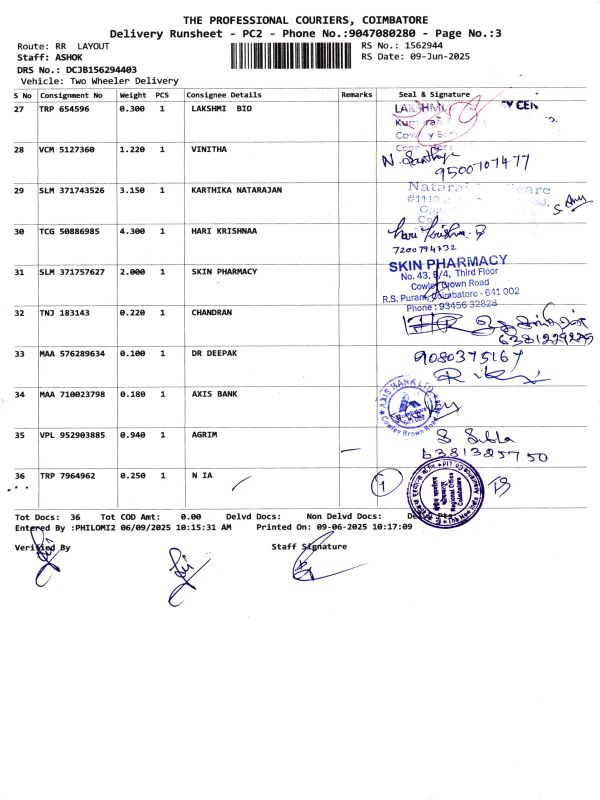 THE PROFESSIONAL COURIERS, COIMBATORE
Delivery Runsheet - PC2 - Phone No.:9047080280 - Page No.:3
Route: RR LAYOUT RS No.: 1562944
Staff: ASHOK RS Date: 09-Jun-2025
DRS No.: DCJB156294403
Vehicle: Two Wheeler Delivery
S No Consignment No Weight PCS Consignee Details Remarks Seal & Signature
27 TRP 654596 0.300 1 LAKSHMI BIO
28 VCM 5127360 1.220 1 VINITHA
9500707477
29 SLM 371743526 3.150 1 KARTHIKA NATARAJAN
30 TCG 50886985 4.300 1 HARI KRISHNAA
Hari Krishna
7200794732
31 SLM 371757627 2.000 1 SKIN PHARMACY
SKIN PHARMACY
No. 43, B/4, Third Floor
Cowley Brown Road
R.S. Puram, Coimbatore - 641 002
Phone : 93456 32828
32 TNJ 183143 0.220 1 CHANDRAN
33 MAA 576289634 0.100 1 DR DEEPAK
9080375167
34 MAA 710023798 0.180 1 AXIS BANK
AXIS BANK LTD
Cowley Brown Road
35 VPL 952903885 0.940 1 AGRIM
6381385750
36 TRP 7964962 0.250 1 N IA
1
Regional Office
Coimbatore
Tot Docs: 36 Tot COD Amt: 0.00 Delvd Docs: Non Delvd Docs:
Entered By :PHILOMI2 06/09/2025 10:15:31 AM Printed On: 09-06-2025 10:17:09
Verified By Staff Signature